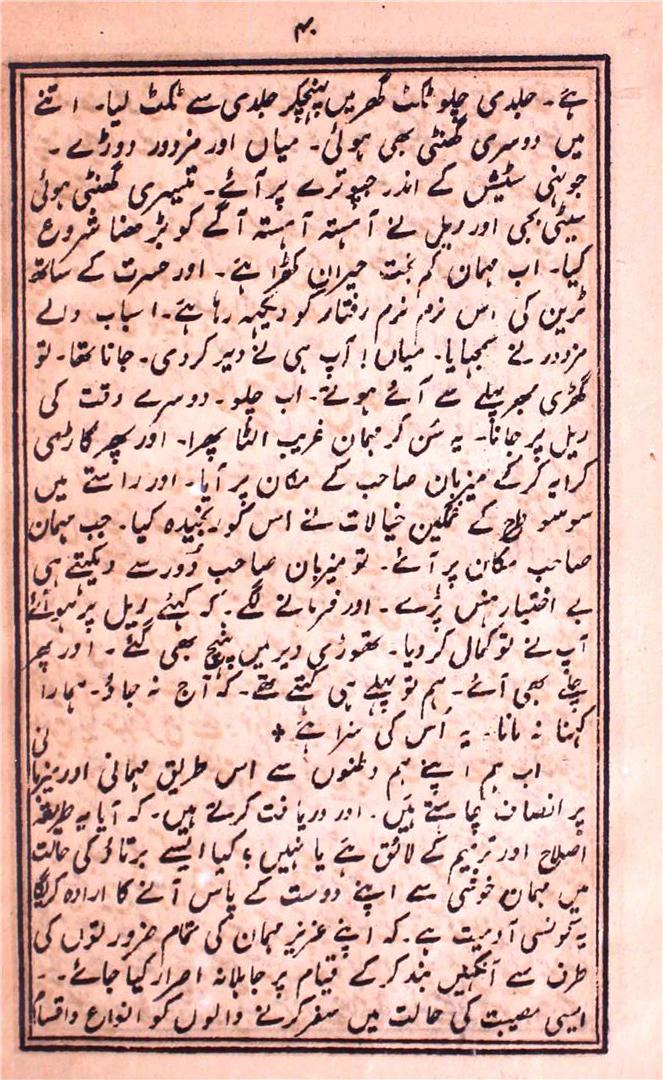 ۴۰
ہے۔ جلدی چلو ٹکٹ گھر میں پہنچکر جلدی سے ٹکٹ لیا۔ اتنے
میں دوسری گھنٹی بھی ہوئی۔ میاں اور مزدور دوڑے۔
جونہی سٹیشن کے اندر چبوترے پر آئے۔ تیسری گھنٹی ہوئی
سیٹی بجی اور ریل نے آہستہ آہستہ آگے کو بڑھنا شروع
کیا۔ اب مہمان کم بخت حیران کھڑا ہے۔ اور حسرت کے ساتھ
ٹرین کی اس نرم نرم رفتار کو دیکھ رہا ہے۔ اسباب والے
مزدور نے سمجہایا۔ میاں! آپ ہی نے دیر کردی۔ جانا تھا۔ تو
گھڑی بھر پہلے سے آئے ہوتے۔ اب چلو۔ دوسرے وقت کی
ریل پر جانا۔ یہ سُن کر مہمان غریب الٹا پھرا۔ اور پھر گاڑی
کرایہ کرکے میزبان صاحب کے مکان پر آیا۔ اور راستے میں
سو سو طرح کے غمگین خیالات نے اس کو رنجیدہ کیا۔ جب مہمان
صاحب مکان پر آئے۔ تو میزبان صاحب دُور سے دیکھتے ہی
بے اختیار ہنس پڑے۔ اور فرمانے لگے۔ کہ کہئے ریل پر ہو آئے
آپ نے تو کمال کردیا۔ تھوڑی دیر میں پہنچ بھی گئے۔ اور پھر
چلے بھی آئے۔ ہم تو پہلے ہی کہتے تھے۔ کہ آج نہ جاؤ۔ ہمارا
کہنا نہ مانا۔ یہ اُس کی سزا ہے ٭
اب ہم اپنے ہم وطنوں سے اس طریق مہمانی اور میزبانی
پر انصاف چاہتے ہیں۔ اور دریافت کرتے ہیں۔ کہ آیا یہ طریقہ
اصلاح اور ترمیم کے لائق ہے یا نہیں؟ کیا ایسے برتاؤ کی حالت
میں مہمان خوشی سے اپنے دوست کے پاس آنے کا ارادہ کریگا
یہ کونسی آدمیت ہے۔ کہ اپنے عزیز مہمان کی تمام ضرورتوں کی
طرف سے آنکھیں بند کرکے قیام پر جاہلانہ اصرار کیا جائے۔۔
ایسی مصیبت کی حالت میں سفر کرنے والوں کو انواع و اقسام